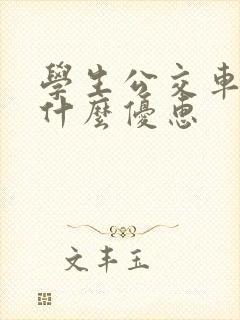 學生公交車
什麼優惠
文丰玉